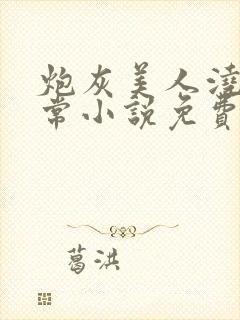 炮灰美人澆
常小說免費
葛洪